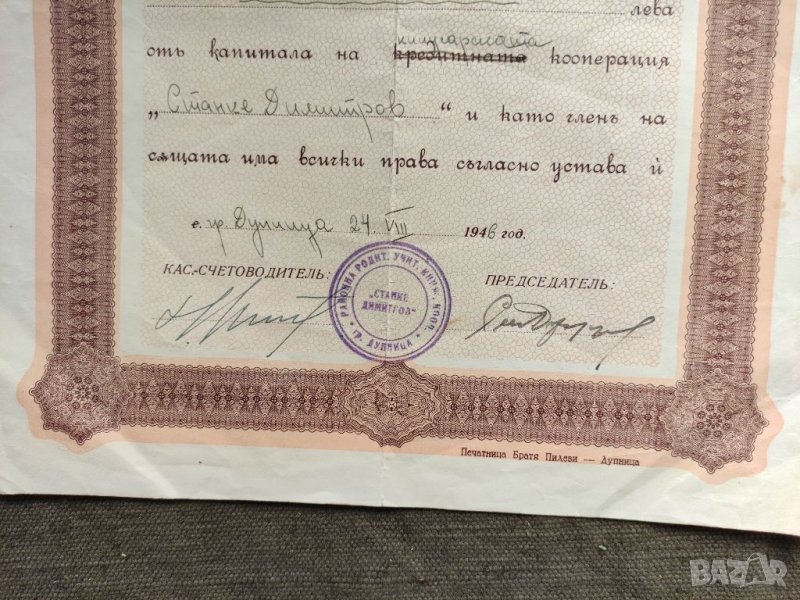 лева
отъ капитала на книжарската кредитната кооперация
„Станке Димитров“ и като членъ на
сѫщата има всички права съгласно устава ѝ
с. гр. Дупница 24. VIII 1946 год.
КАС.-СЧЕТОВОДИТЕЛЬ: ПРЕДСЕДАТЕЛЬ:
РАЙОННА РОДИТ. УЧИТ. КНИЖ. КООП.
"СТАНКЕ
ДИМИТРОВ"
* гр. ДУПНИЦА *
Печатница Братя Пилеви — Дупница
BAZAR